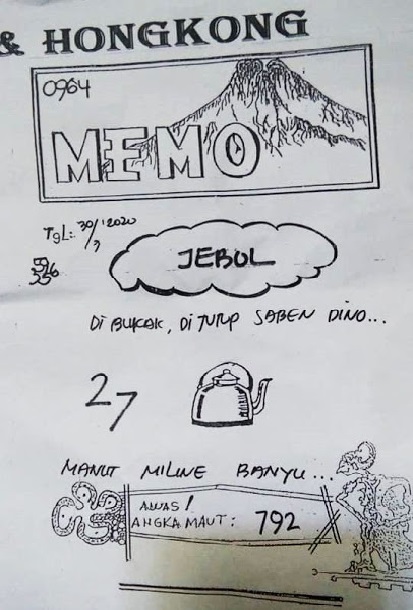 & HONGKONG
0964
MEMO
TgL: 30/7 2020
JEBOL
Di BUKAK, Di TUTUP SABEN DINO...
27
MANUT MILINE BANYU...
AWAS!
ANGKA MAUT: 792